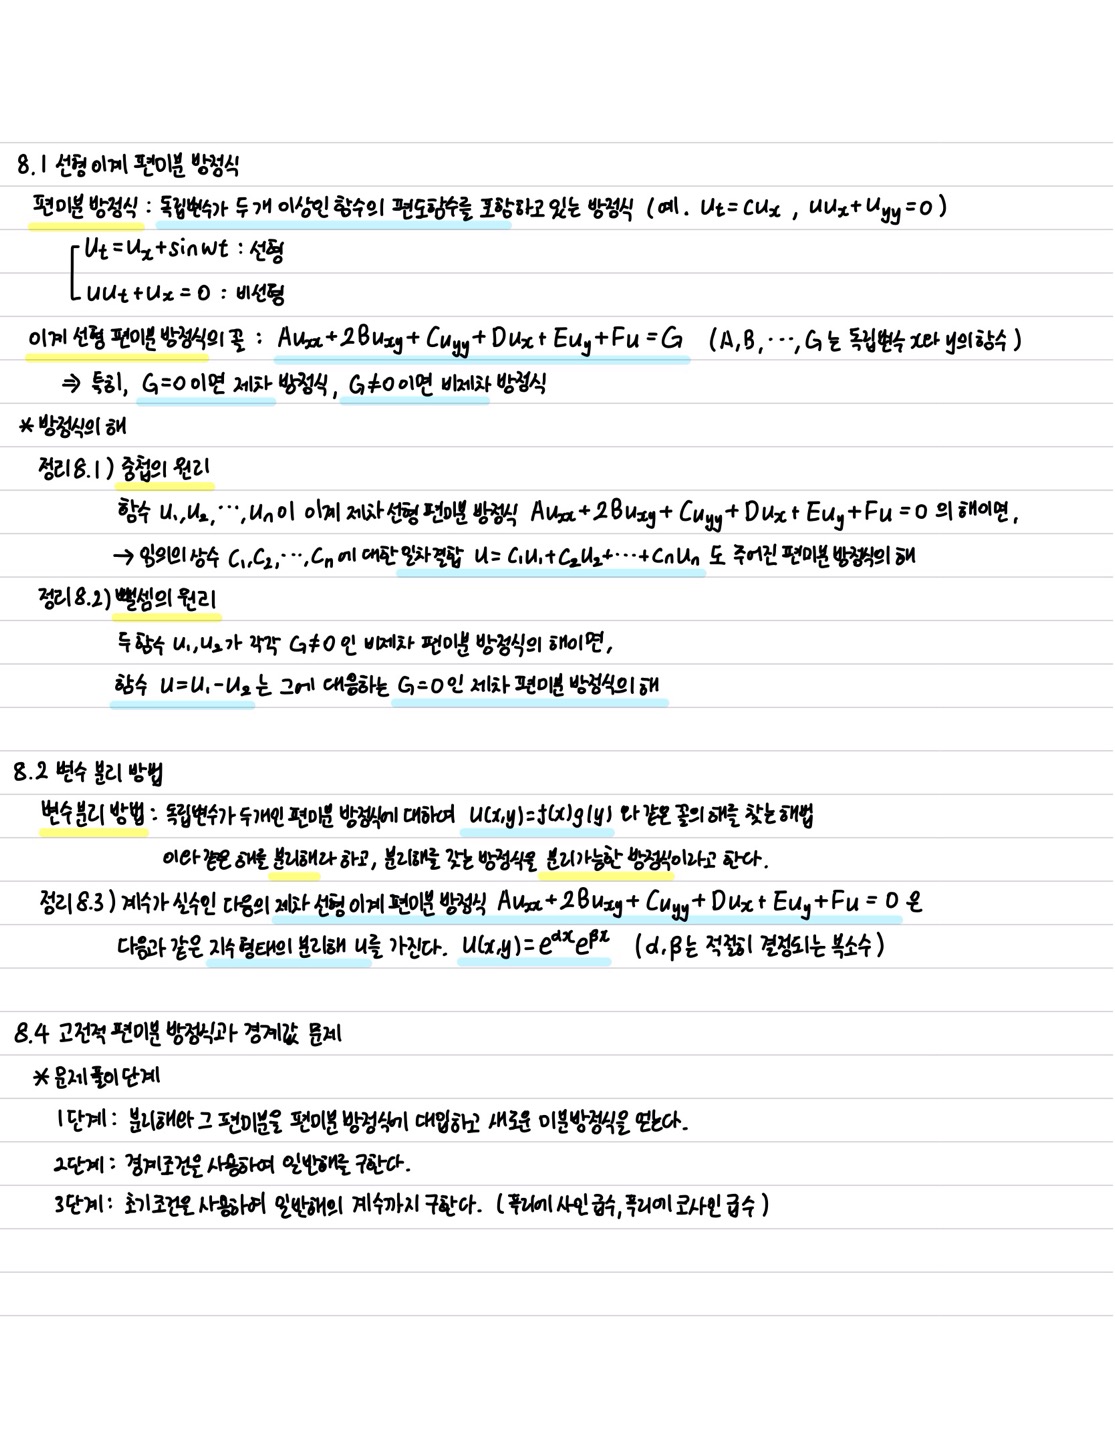 8.1 선형 이계 편미분 방정식
편미분 방정식 : 독립변수가 두 개 이상인 함수의 편도함수를 포함하고 있는 방정식 (예. Ut = CUx , UUx + Uyy = 0)
Ut = Ux + sin wt : 선형
UUt + Ux = 0 : 비선형
이계 선형 편미분 방정식의 꼴 : Auxx + 2Buxy + Cuyy + Dux + Euy + Fu = G (A, B, ⋯, G는 독립변수 x와 y의 함수)
⇒ 특히, G=0 이면 제차 방정식, G≠0 이면 비제차 방정식
* 방정식의 해
정리 8.1) 중첩의 원리
함수 u₁, u₂, ⋯, un이 이계 제차 선형 편미분 방정식 Auxx + 2Buxy + Cuyy + Dux + Euy + Fu = 0 의 해이면,
→ 임의의 상수 C₁, C₂, ⋯, Cn에 대한 일차결합 u = C₁u₁ + C₂u₂ + ⋯ + Cnun 도 주어진 편미분 방정식의 해
정리 8.2) 뺄셈의 원리
두 함수 u₁, u₂가 각각 G≠0 인 비제차 편미분 방정식의 해이면,
함수 u = u₁ - u₂는 그에 대응하는 G=0인 제차 편미분 방정식의 해
8.2 변수 분리 방법
변수분리 방법 : 독립변수가 두개인 편미분 방정식에 대하여 u(x,y)=f(x)g(y) 와 같은 꼴의 해를 찾는 해법
이와 같은 해를 분리해라 하고, 분리해를 갖는 방정식을 분리가능한 방정식이라고 한다.
정리 8.3) 계수가 실수인 다음의 제차 선형 이계 편미분 방정식 Auxx + 2Buxy + Cuyy + Dux + Euy + Fu = 0 은
다음과 같은 지수 형태의 분리해 u를 가진다. u(x,y) = e^αx e^βx (α, β는 적절히 결정되는 복소수)
8.4 고전적 편미분 방정식과 경계값 문제
* 문제 풀이 단계
1단계 : 분리해와 그 편미분을 편미분 방정식에 대입하고 새로운 미분방정식을 얻는다.
2단계 : 경계조건을 사용하여 일반해를 구한다.
3단계 : 초기조건을 사용하여 일반해의 계수까지 구한다. (푸리에 사인 급수, 푸리에 코사인 급수)